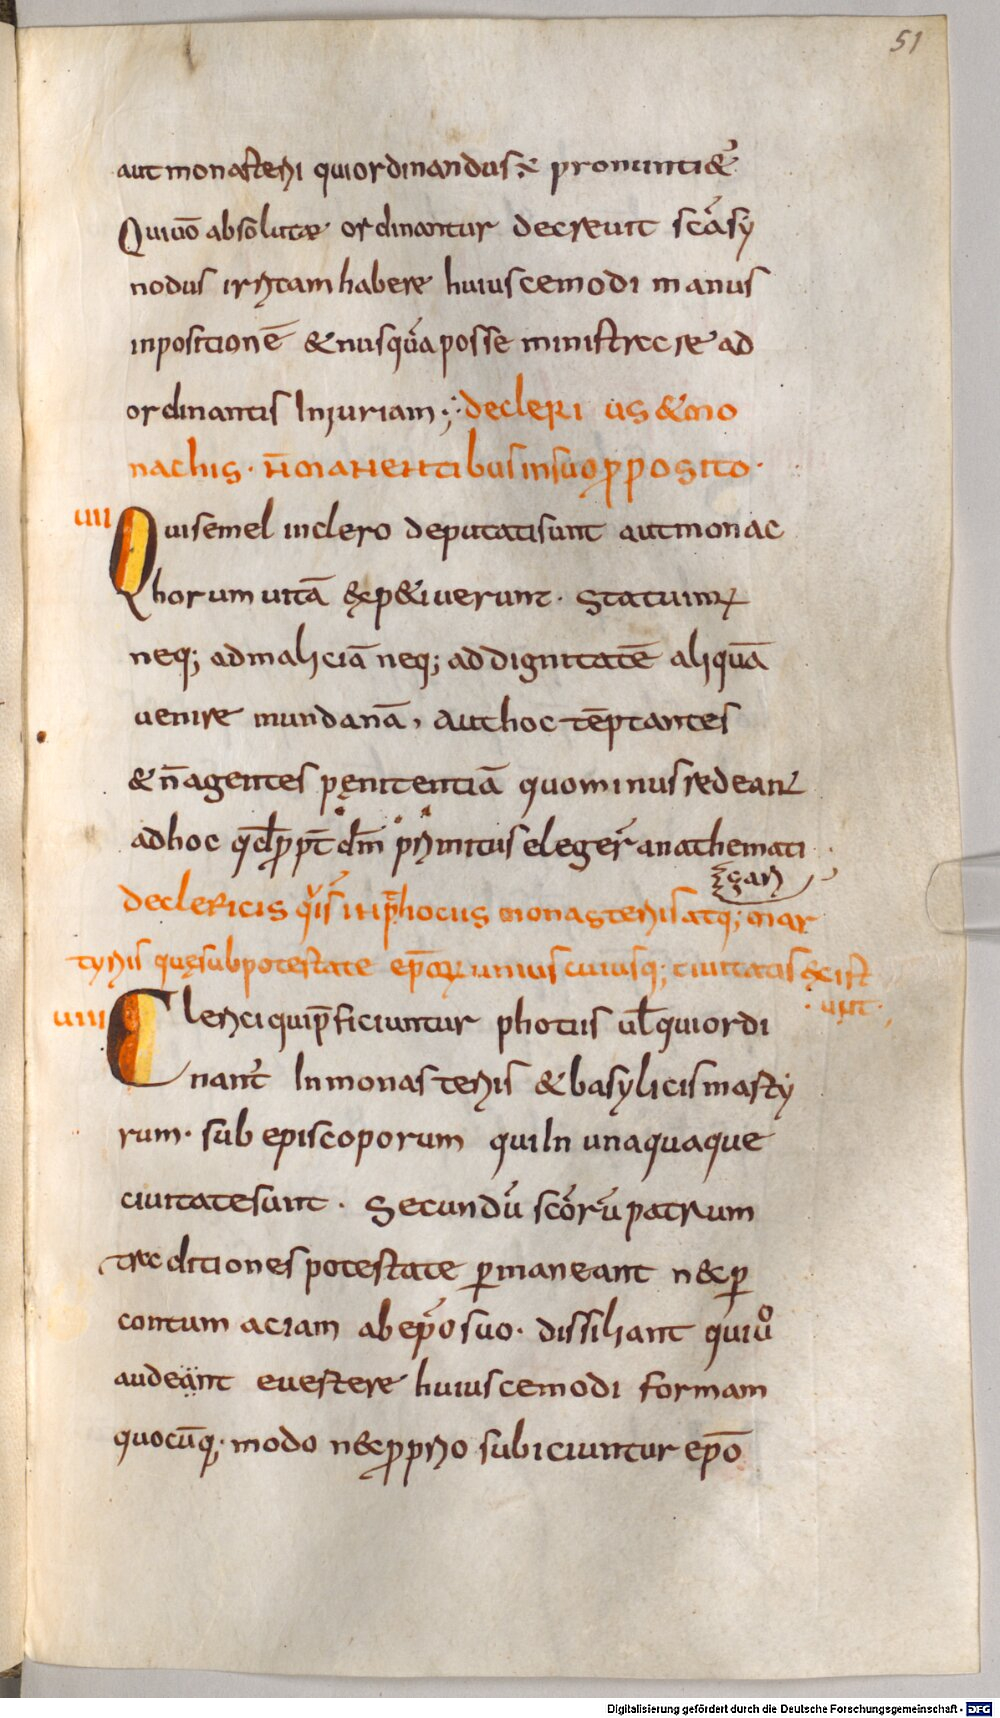 51
aut monasterii qui ordinandus ē pronuntiet᷑
Qui uō absolutae ordinantur decreuit scā sy
nodus irritam habere huiuscemodi manus
inpositionē & nusquā posse ministrare ad
ordinantis Iniuriam ;
de cleri us & mo
nachis · n̄ manentibus in suo proposito ·
uii
Qui semel in clero deputati sunt aut monac
horum uitā expetiuerunt · statuim᷒
neq; ad maliciā neq; ad dignitatē aliquā
uenire mundanā, aut hoc tēptantes
& n̄ agentes pęnitentiā quominus redeant
ad hoc qđ ꝓpt̄ dm̄ primitus eleger̄ anathemati
zari
de clericis qui s̄ in ptochocus monasteriis atq; mar
tyriis quę sub potestate ep̄orum unius cuiusq; ciuitatis exist
unt ·
uiii
Clerici qui p̄ficiuntur photiis ul̄ qui ordi
nant᷑ In monasteriis & basylicis masty
rum · sub episcoporum qui In unaquaque
ciuitate sunt · Secundū scōrū patrum
traditiones potestate ꝑmaneant n& ꝑ
contumaciam ab ep̄o suo · dissiliant qui uo
audeant euestere huiuscemodi formam
quocūq; modo n& ꝓprio subiciuntur ep̄o
Digitalisierung gefördert durch die Deutsche Forschungsgemeinschaft - DFG